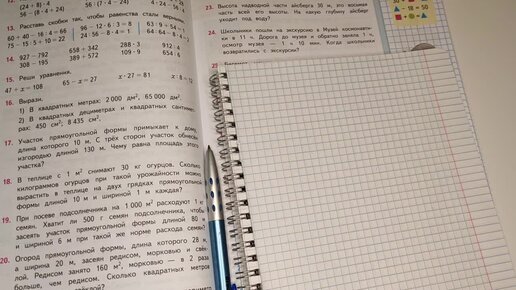 (24 + 8) · 4
13. Расставь скобки так, чтобы равенства стали верными.
60 + 40 − 16 : 4 = 66
96 − 12 · 6 : 3 = 8
75 − 15 : 5 + 10 = 22
24 : 56 − 8 · 4 = 1
14. 927 − 792
658 + 342
288 · 3
912 : 4
308 − 195
389 + 572
109 · 9
654 : 6
15. Реши уравнения.
65 − x = 27
x · 27 = 81
x : 8 = 12
16. Вырази.
1) В квадратных метрах: 2 000 дм², 65 000 дм².
2) В квадратных дециметрах и квадратных сантиметрах: 450 см², 8 435 см².
17. Участок прямоугольной формы примыкает к дому,
длина которого 10 м. С трёх сторон участок обнесён
изгородью длиной 130 м. Чему равна площадь этого
участка?
18. В теплице с 1 м² снимают 30 кг огурцов. Сколько
килограммов огурцов при такой урожайности можно
вырастить в теплице на двух грядках прямоугольной
формы длиной 10 м и шириной 1 м каждая?
19. При посеве подсолнечника на 1 000 м² расходуют 1 кг
семян. Хватит ли 500 г семян подсолнечника, чтобы
засеять участок прямоугольной формы длиной 80 м
и шириной 6 м при такой же норме расхода семян?
20. Огород прямоугольной формы, длина которого 28 м,
а ширина 20 м, засеян редисом, морковью и свёк-
лой. Редисом занято 160 м², морковью — в 2 раза
больше, чем редисом. Сколько квадратных метров
23. Высота надводной части айсберга 30 м, это восьмая
часть всей его высоты. На какую глубину айсберг
уходит под воду?
24. Школьники пошли на экскурсию в Музей космонавти-
ки в 11 ч. Дорога до музея и обратно заняла 1 ч,
осмотр музея — 1 ч 10 мин. Когда школьники
возвратились с экскурсии?